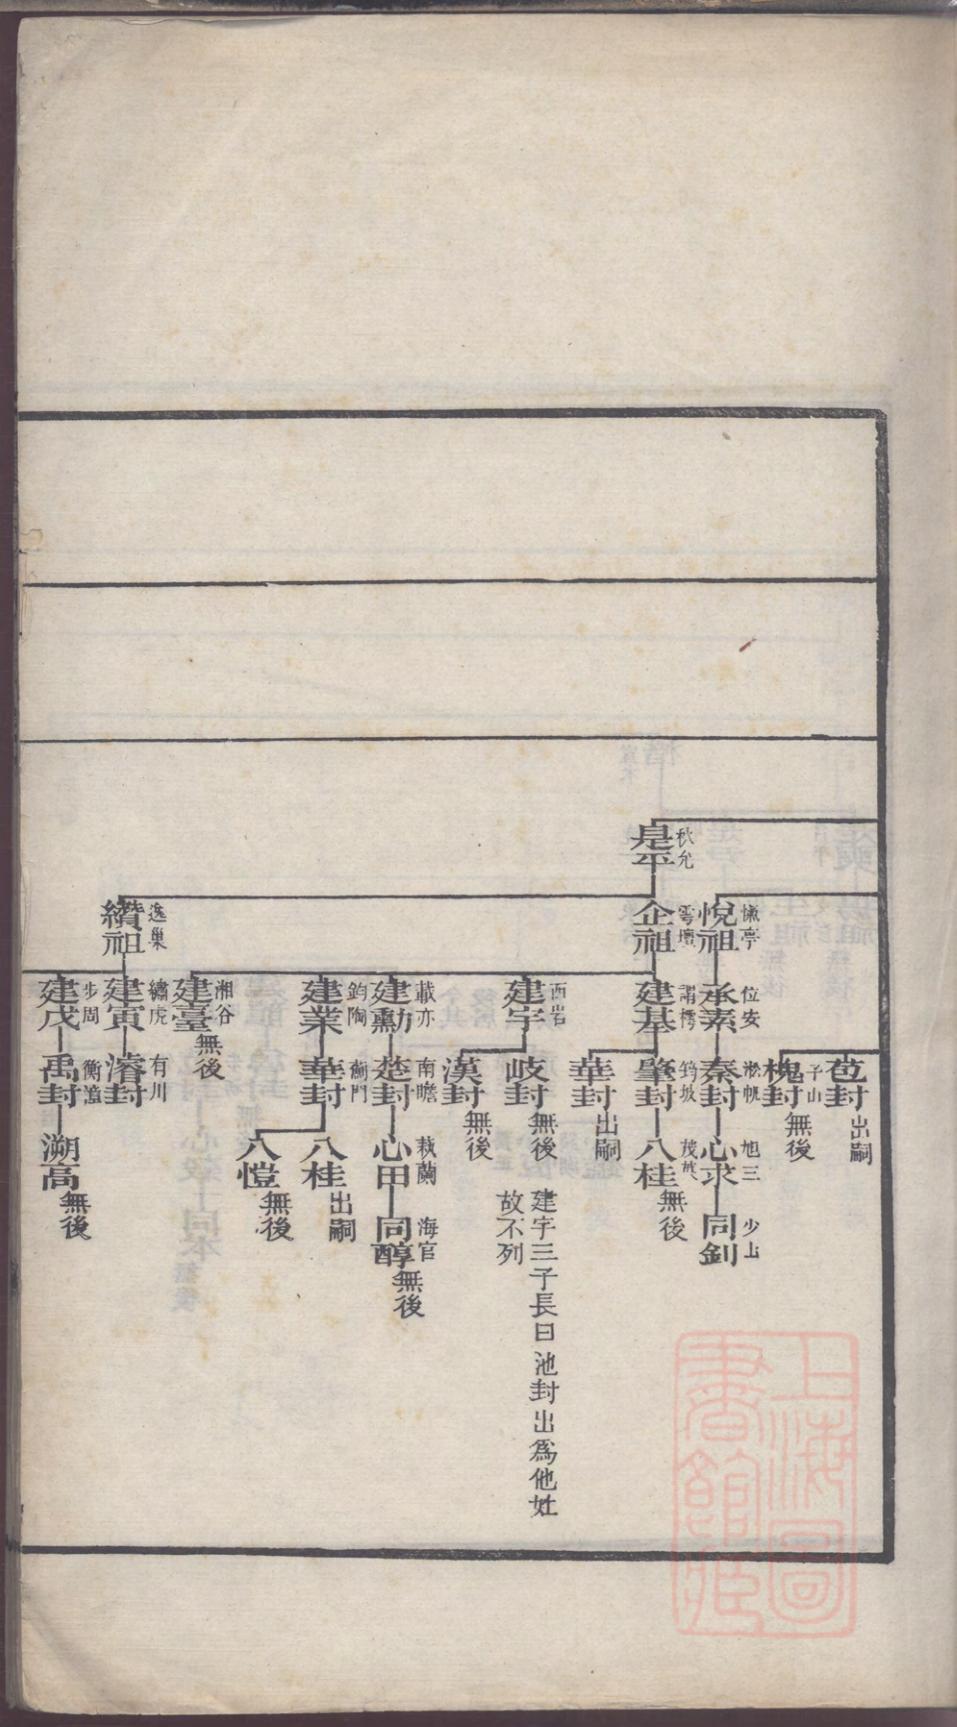 秋允
是平
愜亭
悅祖
雲壇
企祖
逸巢
纘祖
位安
承素
謂樗
建基
西岩
建宇
載亦
建勳
鈞陶
建業
湘谷
建臺
無後
繡虎
建寅
步周
建戊
苞封
出嗣
子山
槐封
無後
淞帆
秦封
肇封
華封
出嗣
岐封
無後
漢封
無後
南瞻
楚封
薊門
華封
有川
濬封
衡瀛
禹封
旭三
心求
八桂
無後
心田
八桂
出嗣
八愷
無後
溯高
無後
少山
同釗
海官
同醇
無後
建宇三子長曰池封出為他姓
故不列
上海圖
書館藏